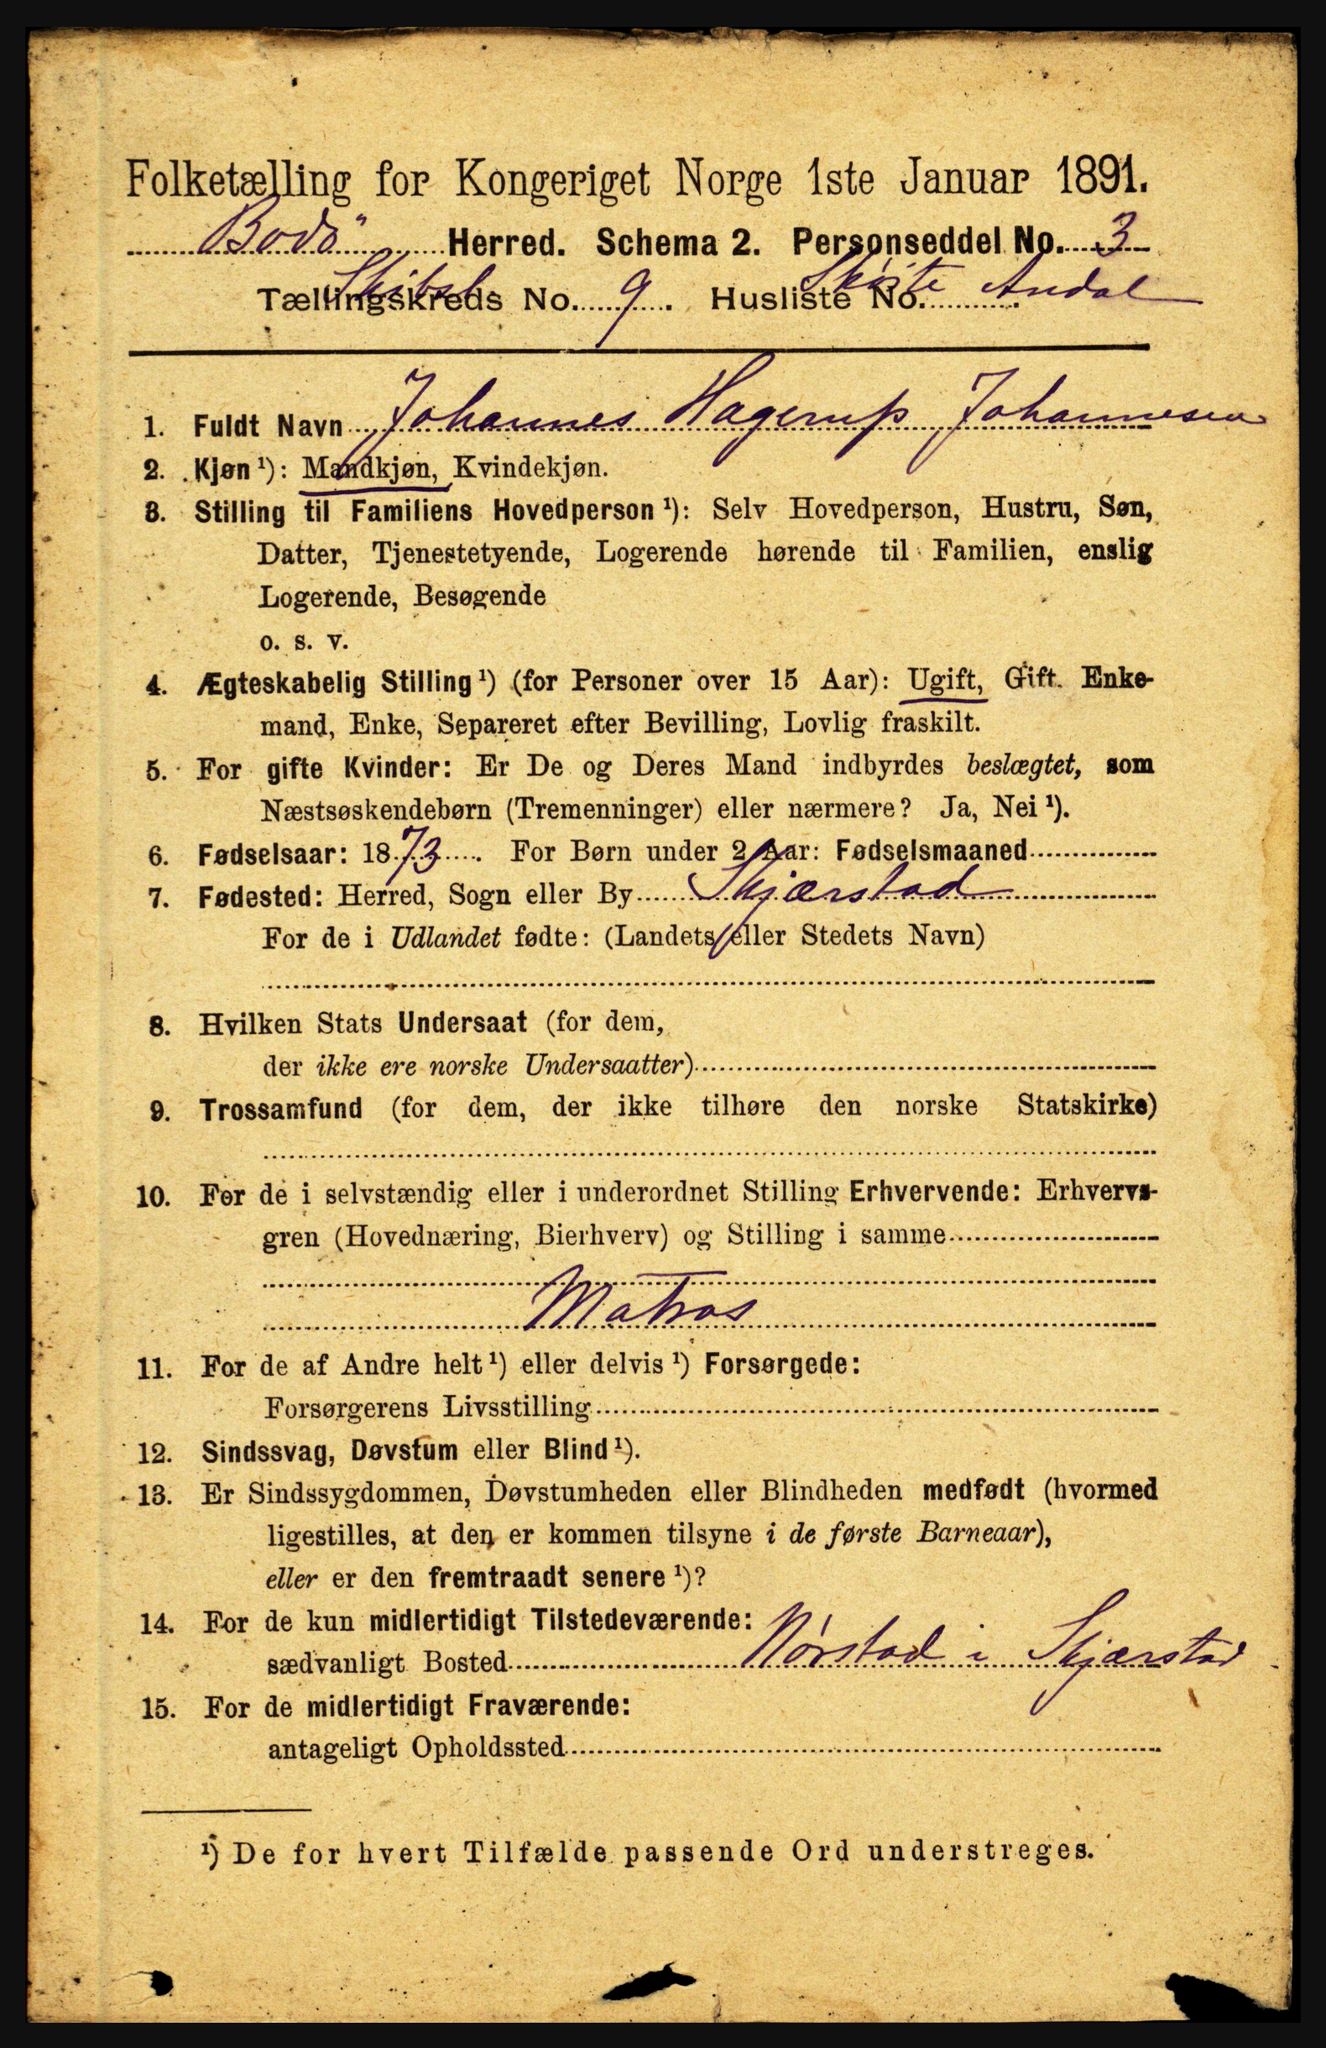 Folketælling for Kongeriget Norge 1ste Januar 1891.
Bodö Herred. Schema 2. Personseddel No. 3
Skibsl. Skøite Andal
Tællingskreds No. 9. Husliste No.
1. Fuldt Navn Johannes Hagerup Johannesen
2. Kjøn ¹): Mandkjøn, Kvindekjøn.
3. Stilling til Familiens Hovedperson ¹): Selv Hovedperson, Hustru, Søn,
Datter, Tjenestetyende, Logerende hørende til Familien, enslig
Logerende, Besøgende
o. s. v.
4. Ægteskabelig Stilling ¹) (for Personer over 15 Aar): Ugift, Gift. Enke-
mand, Enke, Separeret efter Bevilling, Lovlig fraskilt.
5. For gifte Kvinder: Er De og Deres Mand indbyrdes beslægtet, som
Næstsøskendebørn (Tremenninger) eller nærmere? Ja, Nei ¹).
6. Fødselsaar: 1873. For Børn under 2 Aar: Fødselsmaaned
7. Fødested: Herred, Sogn eller By Skjærstad
For de i Udlandet fødte: (Landets eller Stedets Navn)
8. Hvilken Stats Undersaat (for dem,
der ikke ere norske Undersaatter)
9. Trossamfund (for dem, der ikke tilhøre den norske Statskirke)
10. For de i selvstændig eller i underordnet Stilling Erhvervende: Erhvervs-
gren (Hovednæring, Bierhverv) og Stilling i samme
Matros
11. For de af Andre helt ¹) eller delvis ¹) Forsørgede:
Forsørgerens Livsstilling
12. Sindssvag, Døvstum eller Blind ¹).
13. Er Sindssygdommen, Døvstumheden eller Blindheden medfødt (hvormed
ligestilles, at den er kommen tilsyne i de første Barneaar),
eller er den fremtraadt senere ¹)?
14. For de kun midlertidigt Tilstedeværende:
sædvanligt Bosted Nørstad i Skjærstad
15. For de midlertidigt Fraværende:
antageligt Opholdssted
¹) De for hvert Tilfælde passende Ord understreges.